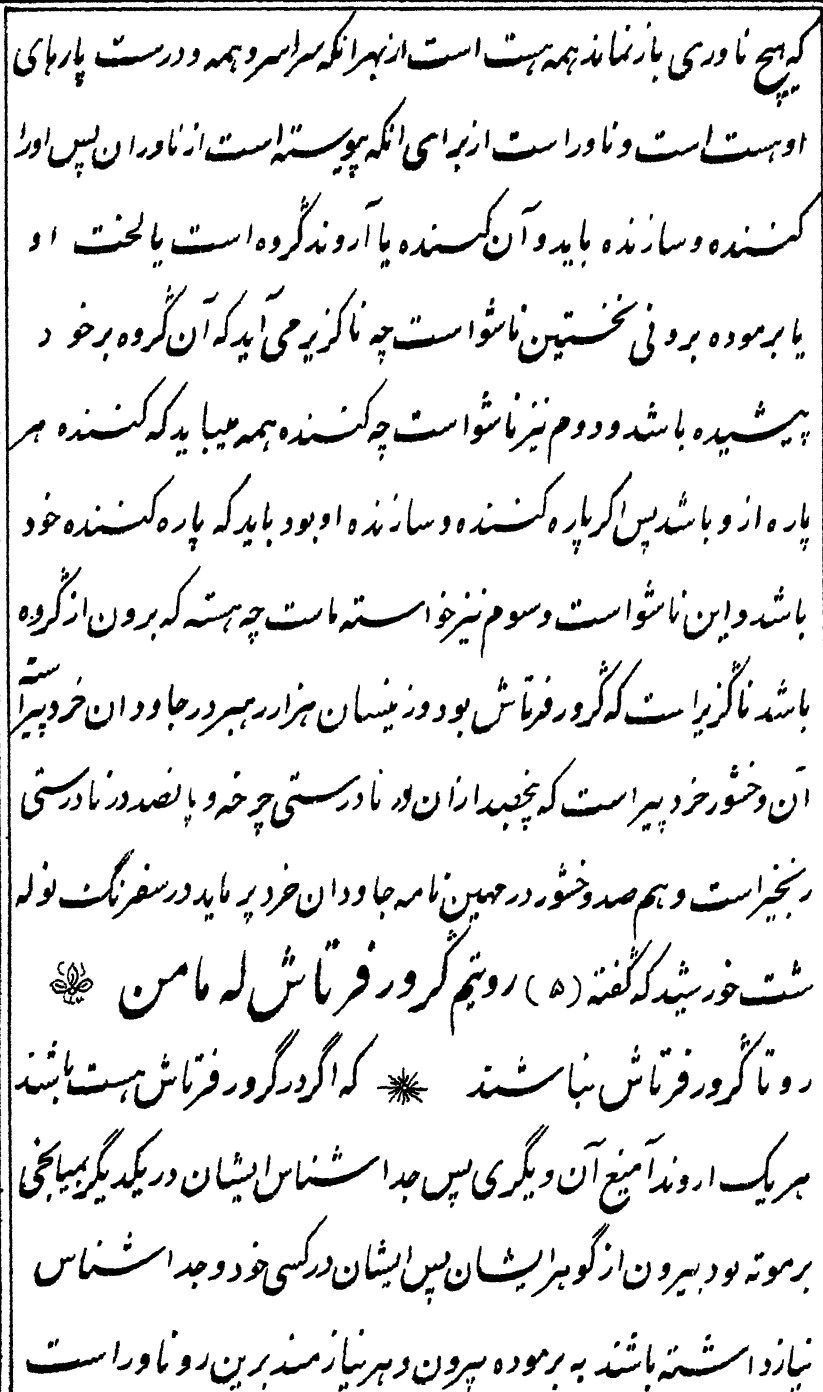 که هیچ ناوری باز نماند همه هست است از بهر انکه سراسر و همه و درست پارهای
او هست است و ناور است از برای انکه پیوسته است از ناوران پس او را
کننده و سازنده باید و آن کننده یا آروند گروه است یا لخت او
یا برموده برونی نخستین ناشوا است چه ناگزیر می آید که آن گروه بر خود
پیشیده باشد و دوم نیز ناشوا است چه کننده همه میباید که کننده هر
پاره از و باشد پس اگر پاره کننده و سازنده او بود باید که پاره کننده خود
باشد و این ناشوا است و سوم نیز خواسته ماست چه هسته که برون از گروه
باشد ناگزیر است که گرور فرتاش بود و زینسان هزار رهبر در جاودان خرد پیراسته
آن وخشور خرد پیر است که پنجهد ازان در نادرستی چرخه و پانصد در نادرستی
زنجیر است و هم صد وخشور در مهین نامه جاودان خرد پر ماید در سفرنگ نوله
شت خورشید که گفته (۵) رویتم گرور فرتاش له مامن
رو تا گرور فرتاش نباشند که اگر در گرور فرتاش هست باشند
هر یک اروند آمیغ آن دیگری پس جدا شناس ایشان در یکدیگر بمیانجی
برموته بود بیرون از گوهر ایشان پس ایشان در کسی خود و جدا شناس
نیاز داشته باشند به برموده بیرون و هر نیازمند برین رو ناور است